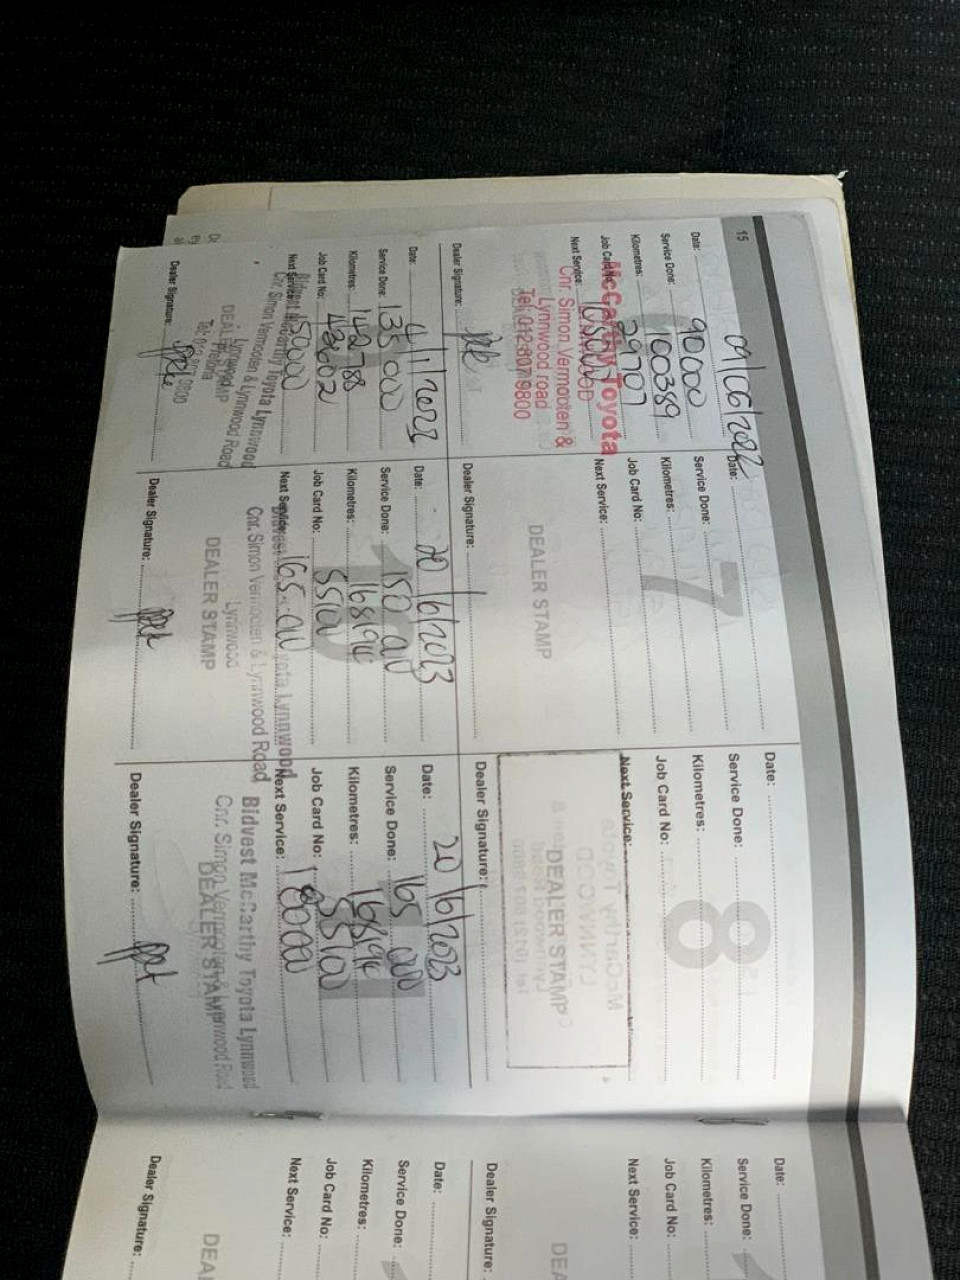 15
Date: 09/06/2022
Service Done: 90000
Kilometres: 100389
Job Card No: 29707
Next Service: 105000
McCarthy Toyota
Cnr. Simon Vermooten &
Lynnwood road
Tel: 012 807 9800
Dealer Signature:
7
Date:
Service Done:
Kilometres:
Job Card No:
Next Service:
DEALER STAMP
Dealer Signature:
8
Date:
Service Done:
Kilometres:
Job Card No:
Next Service:
DEALER STAMP
Dealer Signature:
Date: 4/1/2023
Service Done: 135000
Kilometres: 142788
Job Card No:
Next Service: 150000
Bidvest McCarthy Toyota Lynnwood
Cnr. Simon Vermooten & Lynnwood Road
Lynnwood
Pretoria
Tel: 012 807 9800
Dealer Signature:
10
Date: 20/6/2023
Service Done: 150 000
Kilometres: 16819
Job Card No:
Next Service: 165 000
Toyota Lynnwood
Cnr. Simon Vermooten & Lynnwood Road
Lynnwood
DEALER STAMP
Dealer Signature:
Date: 20/6/2023
Service Done: 165 000
Kilometres: 16819
Job Card No:
Next Service: 180000
Bidvest McCarthy Toyota Lynnwood
Cnr. Simon Vermooten & Lynnwood Road
DEALER STAMP
Dealer Signature:
Date:
Service Done:
Kilometres:
Job Card No:
Next Service:
DEA
Dealer Signature:
Date:
Service Done:
Kilometres:
Job Card No:
Next Service:
DEAL
Dealer Signature: